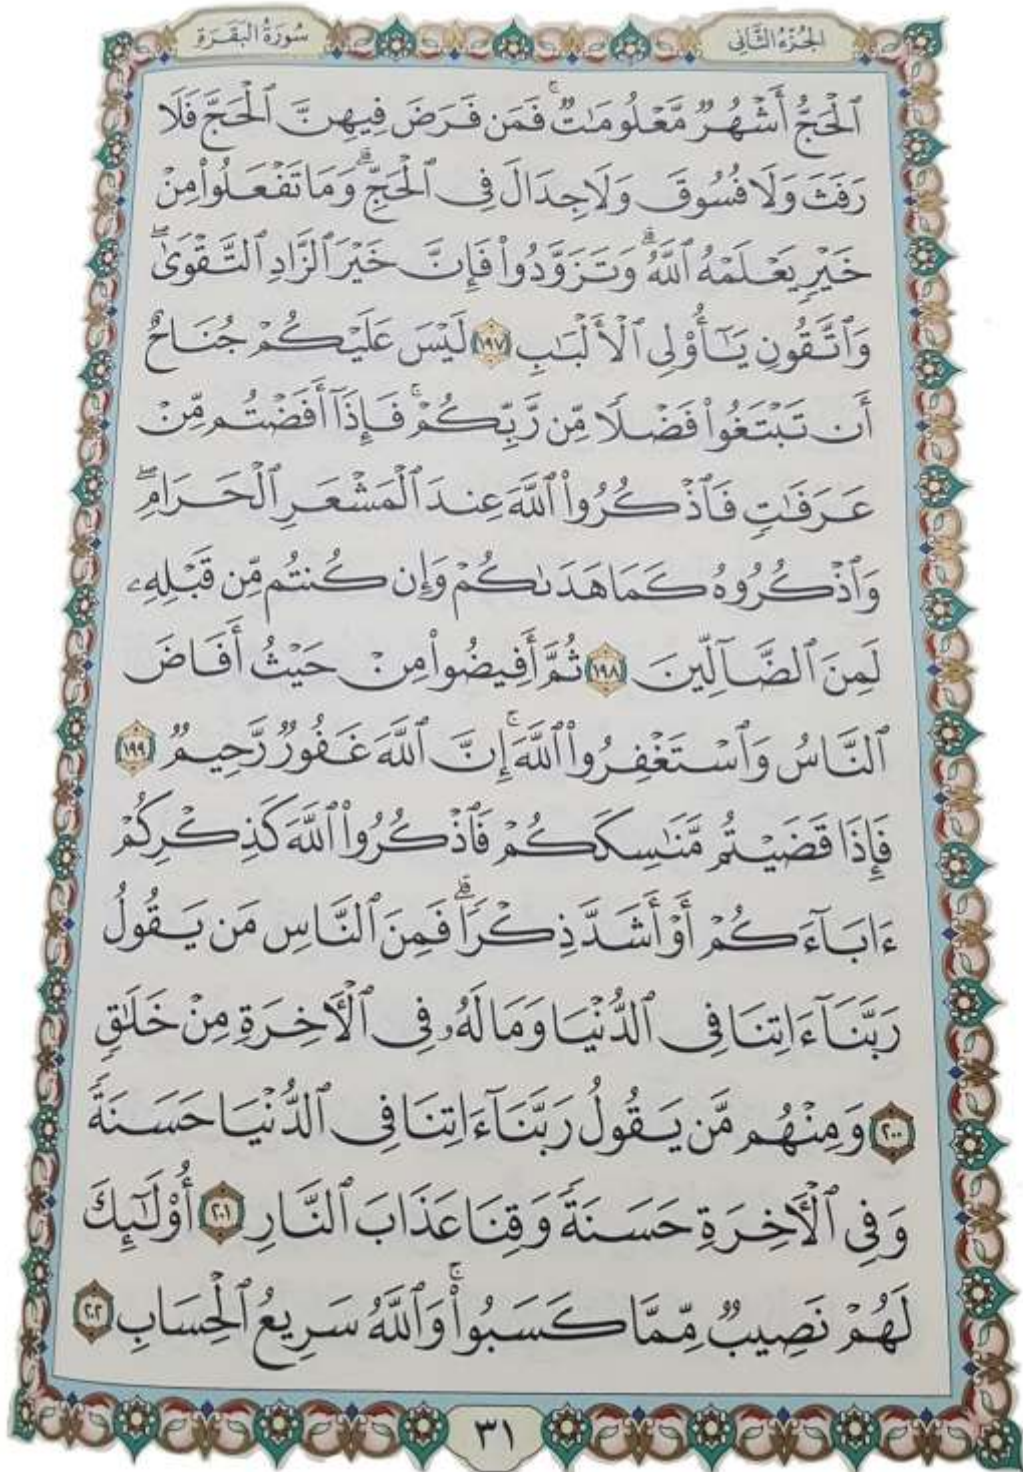 الجُزْءُ الثَّانِي
سُورَةُ البَقَرَةِ
ٱلۡحَجُّ أَشۡهُرٞ مَّعۡلُومَٰتٞۚ فَمَن فَرَضَ فِيهِنَّ ٱلۡحَجَّ فَلَا
رَفَثَ وَلَا فُسُوقَ وَلَا جِدَالَ فِي ٱلۡحَجِّۗ وَمَا تَفۡعَلُواْ مِنۡ
خَيۡرٖ يَعۡلَمۡهُ ٱللَّهُۗ وَتَزَوَّدُواْ فَإِنَّ خَيۡرَ ٱلزَّادِ ٱلتَّقۡوَىٰۖ
وَٱتَّقُونِ يَـٰٓأُوْلِي ٱلۡأَلۡبَٰبِ ١٩٧ لَيۡسَ عَلَيۡكُمۡ جُنَاحٌ
أَن تَبۡتَغُواْ فَضۡلٗا مِّن رَّبِّكُمۡۚ فَإِذَآ أَفَضۡتُم مِّنۡ
عَرَفَٰتٖ فَٱذۡكُرُواْ ٱللَّهَ عِندَ ٱلۡمَشۡعَرِ ٱلۡحَرَامِۖ
وَٱذۡكُرُوهُ كَمَا هَدَىٰكُمۡ وَإِن كُنتُم مِّن قَبۡلِهِۦ
لَمِنَ ٱلضَّآلِّينَ ١٩٨ ثُمَّ أَفِيضُواْ مِنۡ حَيۡثُ أَفَاضَ
ٱلنَّاسُ وَٱسۡتَغۡفِرُواْ ٱللَّهَۚ إِنَّ ٱللَّهَ غَفُورٞ رَّحِيمٞ ١٩٩
فَإِذَا قَضَيۡتُم مَّنَٰسِكَكُمۡ فَٱذۡكُرُواْ ٱللَّهَ كَذِكۡرِكُمۡ
ءَابَآءَكُمۡ أَوۡ أَشَدَّ ذِكۡرٗاۗ فَمِنَ ٱلنَّاسِ مَن يَقُولُ
رَبَّنَآ ءَاتِنَا فِي ٱلدُّنۡيَا وَمَا لَهُۥ فِي ٱلۡأٓخِرَةِ مِنۡ خَلَٰقٖ
٢٠٠ وَمِنۡهُم مَّن يَقُولُ رَبَّنَآ ءَاتِنَا فِي ٱلدُّنۡيَا حَسَنَةٗ
وَفِي ٱلۡأٓخِرَةِ حَسَنَةٗ وَقِنَا عَذَابَ ٱلنَّارِ ٢٠١ أُوْلَـٰٓئِكَ
لَهُمۡ نَصِيبٞ مِّمَّا كَسَبُواْۚ وَٱللَّهُ سَرِيعُ ٱلۡحِسَابِ ٢٠٢
٣١